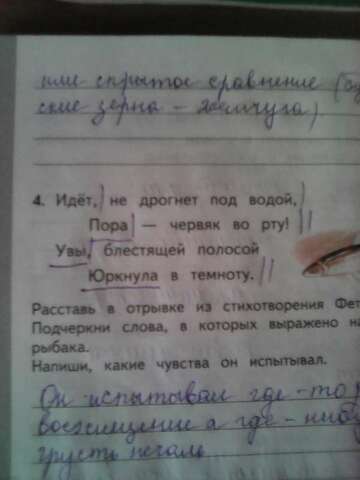 или скрытое сравнение
ские зерна – жемчуга)
4. Идёт, не дрогнет под водой,
Пора — червяк во рту!
Увы, блестящей полосой
Юркнула в темноту.
Расставь в отрывке из стихотворения Фет
Подчеркни слова, в которых выражено на
рыбака.
Напиши, какие чувства он испытывал.
Он испытывал где-то
восхищение а где-нибу
грусть печаль